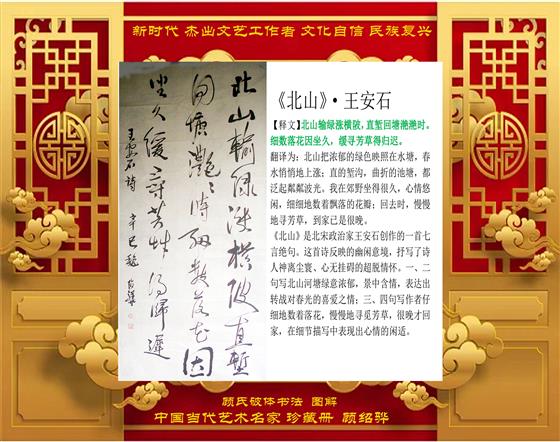 新时代 杰出文艺工作者 文化自信 民族复兴
北山输绿涨横陂直堑
回塘滟滟时细数落花因
坐久缓寻芳草得归迟
王安石诗 辛巳秋 绍骅
《北山》·王安石
【释文】北山输绿涨横陂,直堑回塘滟滟时。
细数落花因坐久,缓寻芳草得归迟。
翻译为:北山把浓郁的绿色映照在水塘,春
水悄悄地上涨;直的堑沟,曲折的池塘,都
泛起粼粼波光。我在郊野坐得很久,心情悠
闲,细细地数着飘落的花瓣;回去时,慢慢
地寻芳草,到家已是很晚。
《北山》是北宋政治家王安石创作的一首七
言绝句。这首诗反映的幽闲意境,抒写了诗
人神离尘寰、心无挂碍的超脱情怀。一、二
句写北山河塘绿意浓郁,景中含情,表达出
转战对春光的喜爱之情;三、四句写作者仔
细地数着落花,慢慢地寻觅芳草,很晚才回
家,在细节描写中表现出心情的闲适。
顾氏破体书法 图解
中国当代艺术名家 珍藏册 顾绍骅